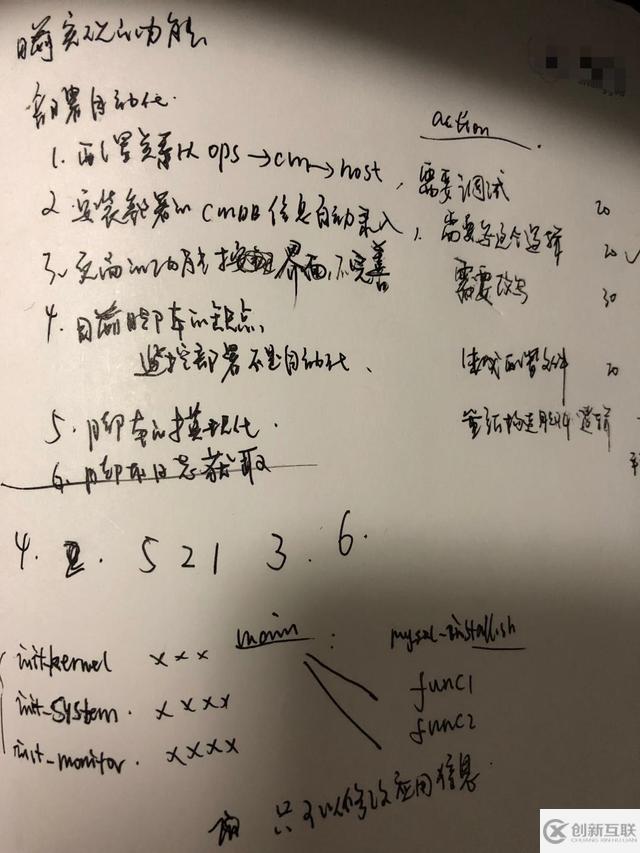 目前实现的功能
部署自动化
action
1. 配置关系从 ops→cm→host, 需要调试 20
2 安装部署的 CMDB 信息自动录入, 需要写这个逻辑 20 ✓
3. 页面的功能按钮界面, 不完善 需要改写 30
4. 目前脚本的缺点,
监控部署不是自动化、 生成配置文件 20
5. 脚本的模块化. 重新构造脚本逻辑
6. 脚本日志获取
4. 5 2 1 3. 6.
main : mysql-install.sh
init-kernel x x x
func1
init-system. x x x x
func2
init-monitor. x x x x
只可以修改应用信息.
创新互联
CHUANG XIN HU LIAN